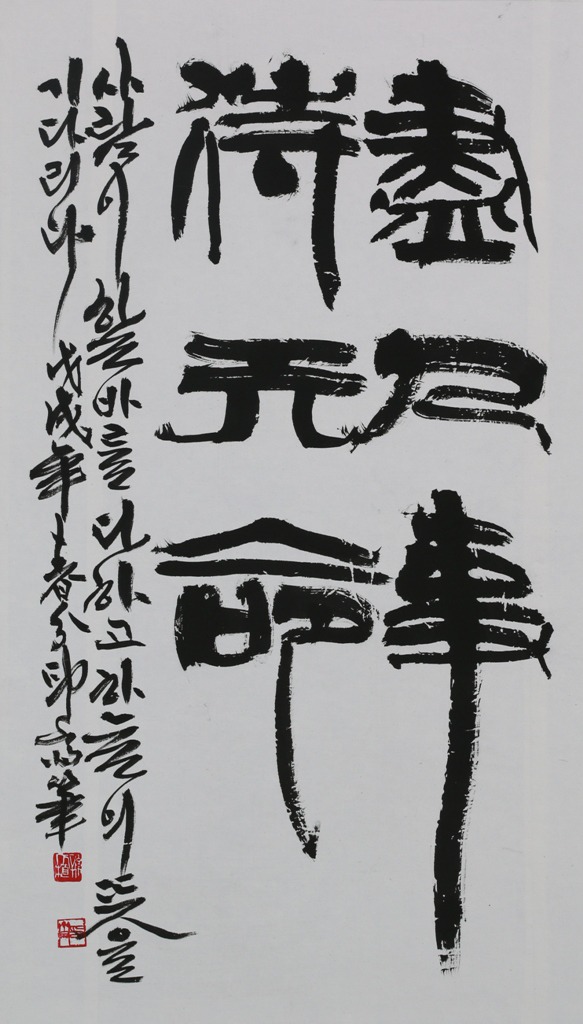 盡人事
待天命
사람이 할 바를 다하고 하늘의 뜻을
기다리다 戊戌年 春分 筆